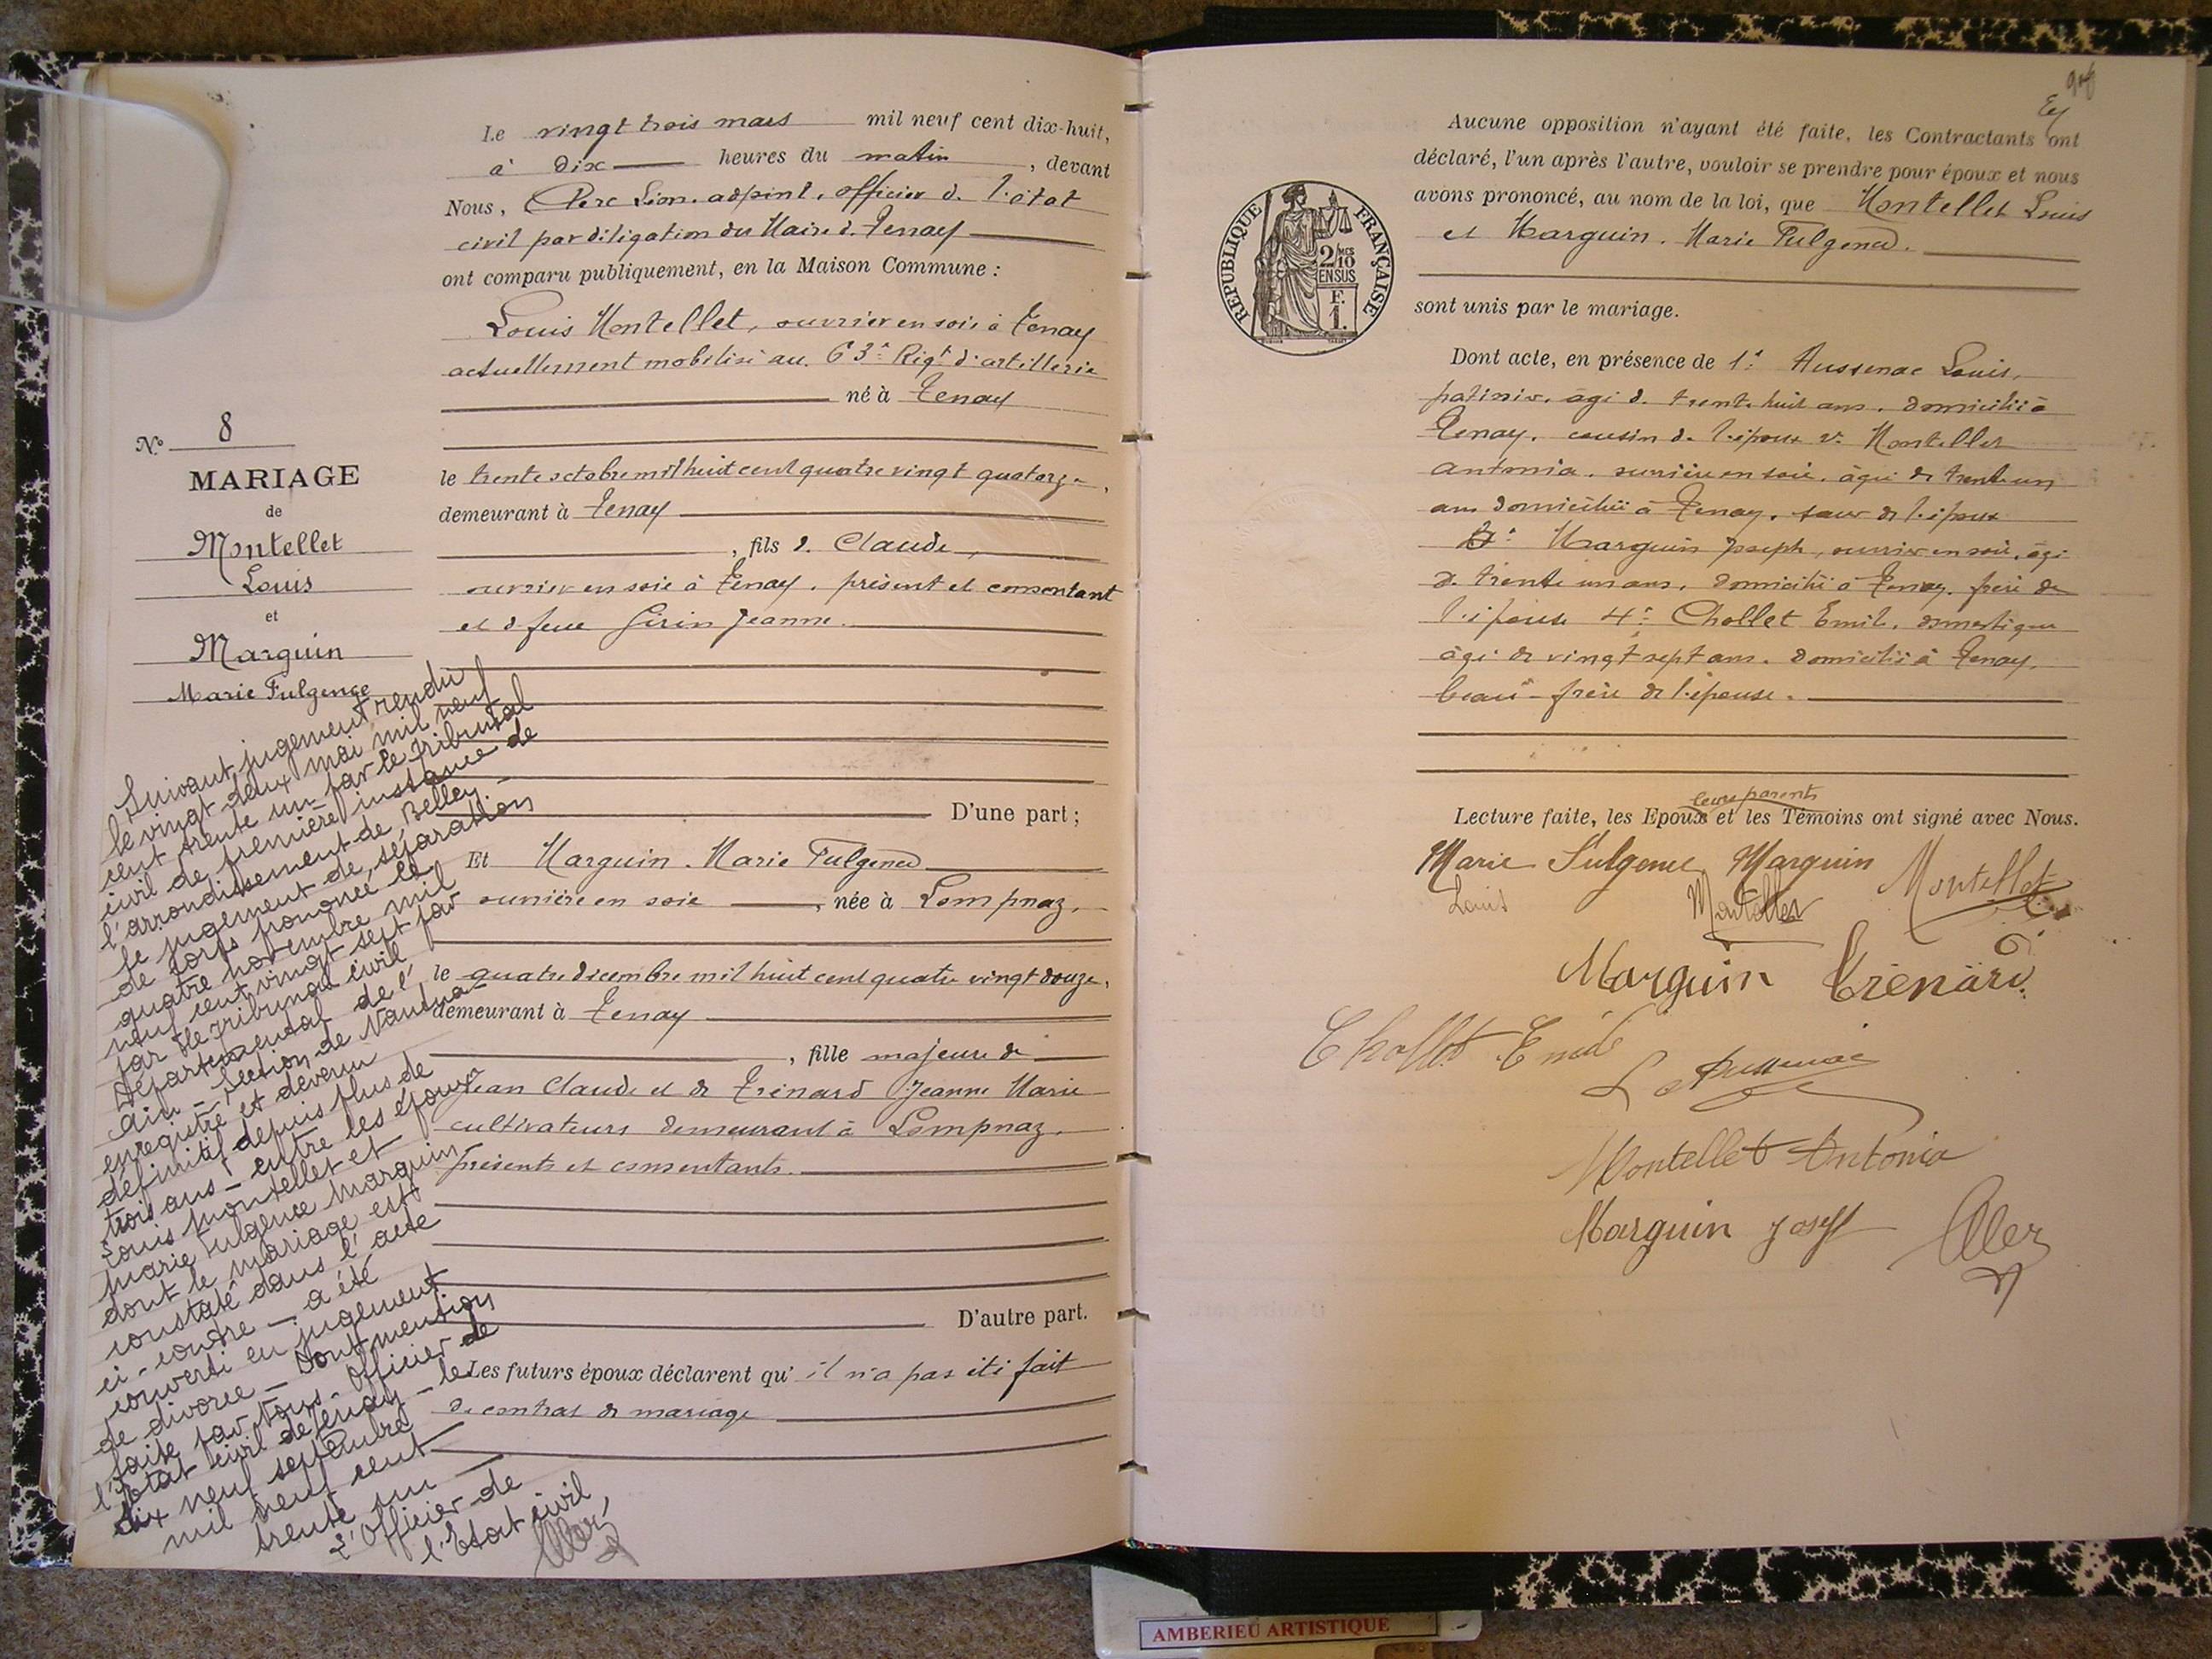 Le vingt trois mars mil neuf cent dix-huit,
à dix heures du matin, devant
Nous, Clerc Léon, adjoint, officier de l'état
civil par délégation du Maire de Tenay
ont comparu publiquement, en la Maison Commune :
Louis Montellet, ouvrier en soie à Tenay
actuellement mobilisé au 63e Rigt d'artillerie
né à Tenay
le trente octobre mil huit cent quatre vingt quatorze,
demeurant à Tenay
, fils de Claude,
ouvrier en soie à Tenay, présent et consentant
et de feue Girin Jeanne.
D'une part ;
Et Marguin Marie Fulgence
ouvrière en soie, née à Lompnaz,
le quatre décembre mil huit cent quatre vingt douze,
demeurant à Tenay
, fille majeure de
Jean Claude et de Trénard Jeanne Marie
cultivateurs demeurant à Lompnaz,
présents et consentants.
D'autre part.
Les futurs époux déclarent qu'il n'a pas été fait
de contrat de mariage
No 8
MARIAGE
de
Montellet
Louis
et
Marguin
Marie Fulgence
Suivant jugement rendu
le vingt deux mai mil neuf
cent trente un par le tribunal
civil de première instance de
l'arrondissement de Belley.
le jugement de séparation
de corps prononcé le
quatre novembre mil
neuf cent vingt sept par
par le tribunal civil
Départemental de l'
Ain - Section de Nantua
enregistré et devenu
définitif depuis plus de
trois ans - entre les époux
Louis Montellet et
Marie Fulgence Marguin
dont le mariage est
constaté dans l'acte
ci-contre - a été
converti en jugement
de divorce - Dont mention
faite par Nous - Officier de
l'Etat civil de Tenay - le
dix neuf septembre
mil neuf cent
trente un
L'Officier de
l'Etat civil
Aucune opposition n'ayant été faite, les Contractants ont
déclaré, l'un après l'autre, vouloir se prendre pour époux et nous
avons prononcé, au nom de la loi, que Montellet Louis
et Marguin Marie Fulgence.
sont unis par le mariage.
RÉPUBLIQUE FRANÇAISE
2/10
EN SUS
F.
1.
Dont acte, en présence de 1° Aussenac Louis,
âgé de trente huit ans, domicilié à
Tenay, cousin de l'époux 2° Montellet
Antonia, ouvrière en soie, âgée de trente un
ans domiciliée à Tenay, sœur de l'époux
3° Marguin Joseph, ouvrier en soie, âgé
de trente un ans, domicilié à Tenay, frère de
l'épouse 4° Chollet Emile, domestique
âgé de vingt sept ans, domicilié à Tenay,
beau-frère de l'épouse.
leurs parents
Lecture faite, les Epoux et les Témoins ont signé avec Nous.
Marie Fulgence Marguin Montellet
Louis Montellet
Marguin Trénard
Chollet Emile
L Aussenac
Montellet Antonia
Marguin Joseph
AMBERIEU ARTISTIQUE